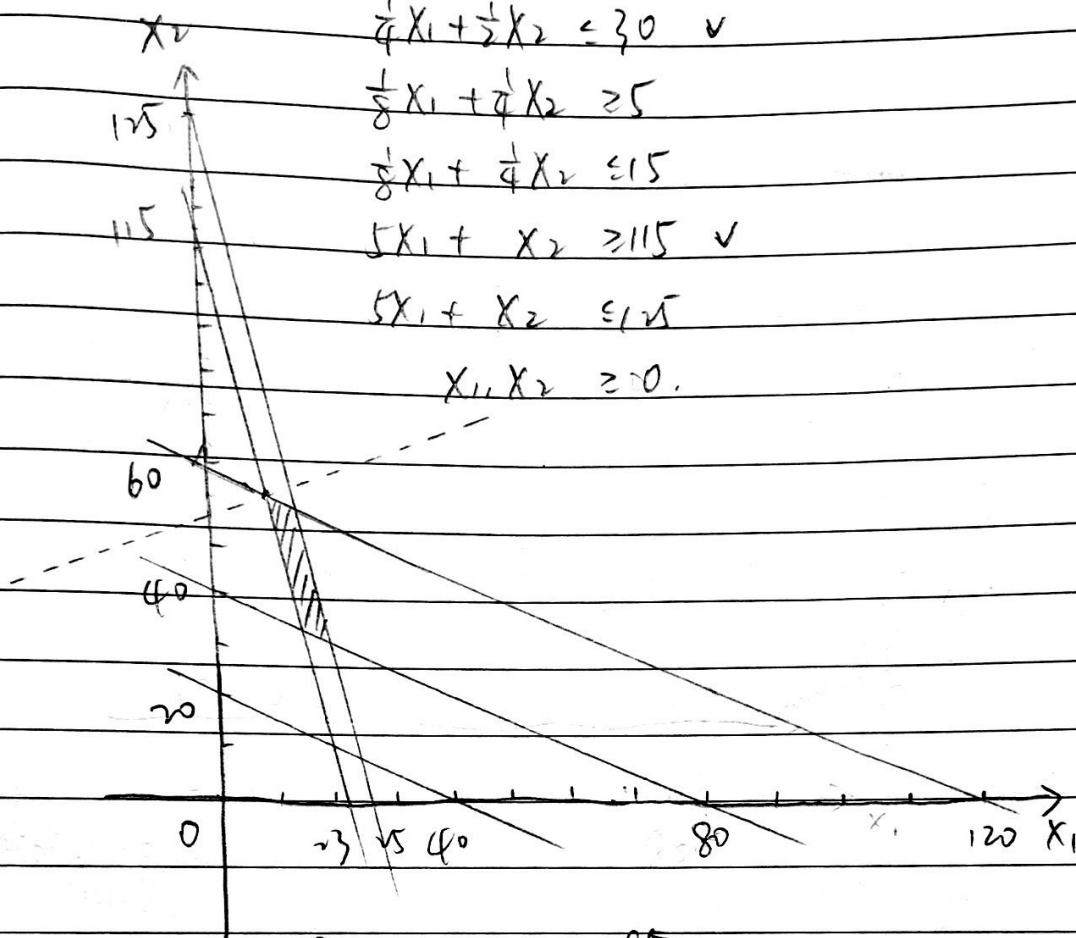 X₂
1/4 X₁ + 1/2 X₂ ≤ 30 ✓
1/8 X₁ + 1/4 X₂ ≥ 5
1/8 X₁ + 1/4 X₂ ≤ 15
5X₁ + X₂ ≥ 115 ✓
5X₁ + X₂ ≤ 125
X₁, X₂ ≥ 0.
125
115
60
40
20
0 23 25 40 80 120 X₁